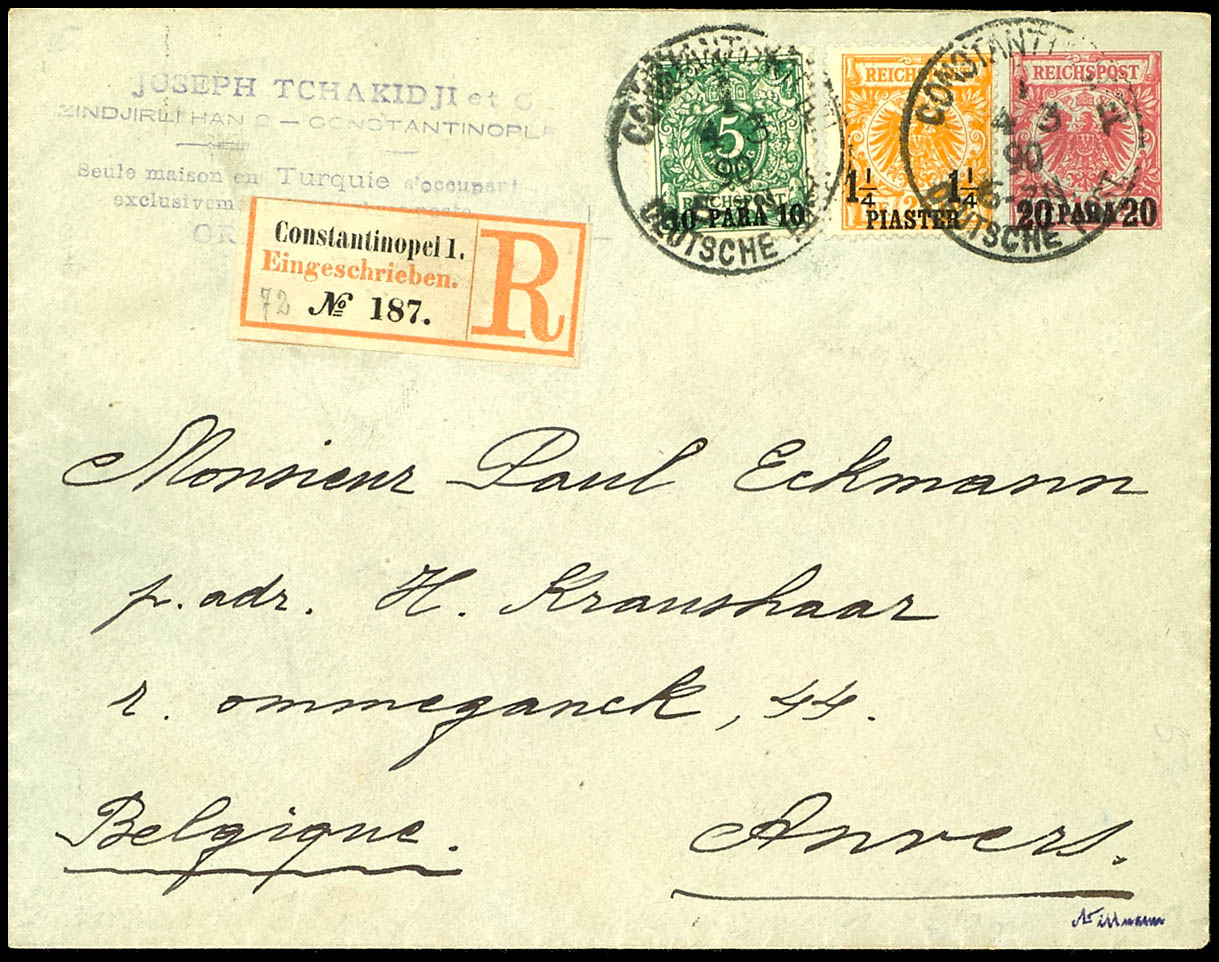 JOSEPH TCHAKIDJI et C
ZINDJIRLI HAN — CONSTANTINOPLE
Seule maison en Turquie s'occupant
exclusivem
OR
Constantinopel 1.
Eingeschrieben.
72 № 187.
R
CONSTANTI
1
4 3
90
DEUTSCHE
5
PFENNIG
REICHSPOST
10 PARA 10
REICHSPOST
1¼ 1¼
PIASTER
CONSTANTI
1
4 3
90
6-7N
DEUTSCHE
REICHSPOST
20 PARA 20
Monsieur Paul Eckmann
p. adr. H. Kraushaar
r. ommeganck, 44.
Belgique. Anvers.